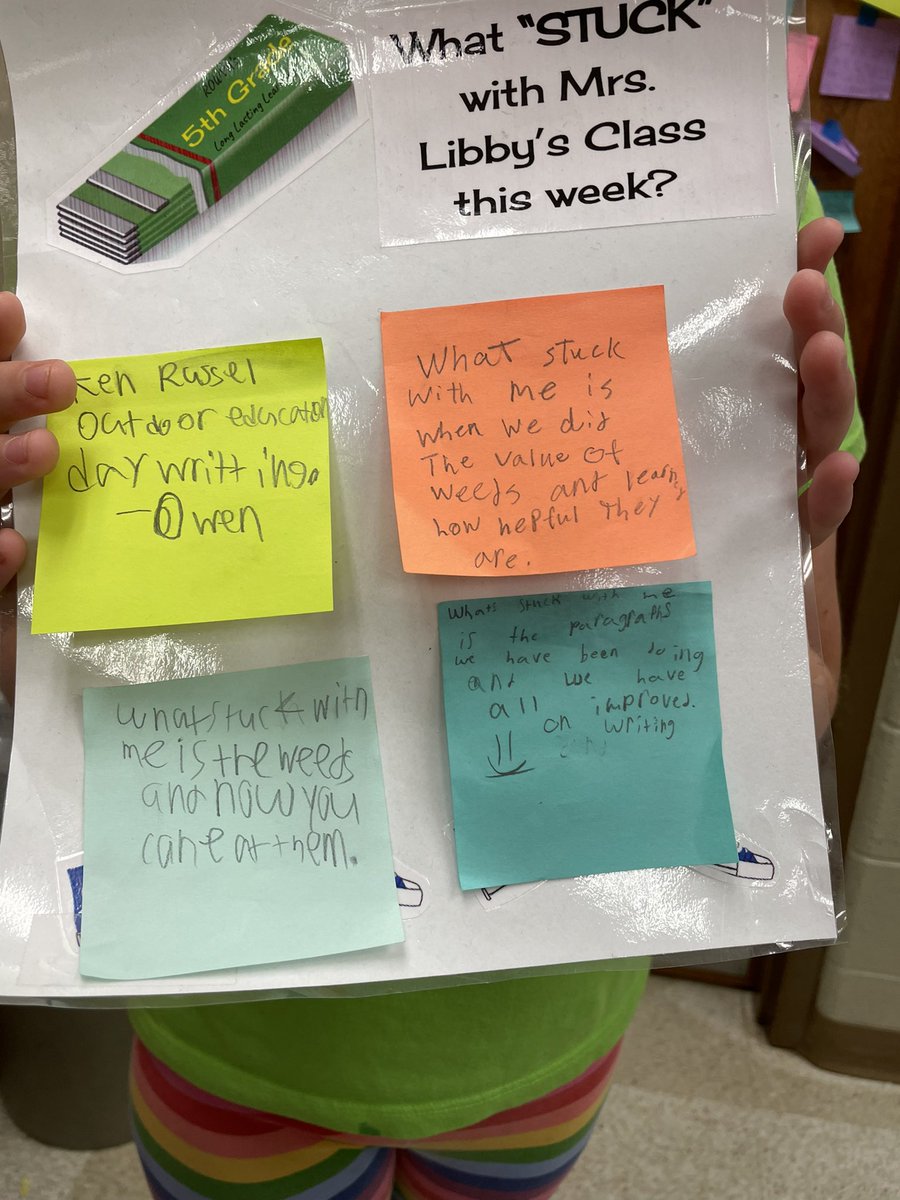 5th Grade
Long Lasting Lea
What "STUCK"
with Mrs.
Libby's Class
this week?
Ken Russel
Outdoor education
day writting.
-Owen
What stuck
with me is
when we did
The value of
weeds and learning
how helpful they
are.
whatstuck with
me is the weeds
and how you
can eat them.
Whats stuck with me
is the paragraphs
we have been doing
and we have
all improved.
on writing